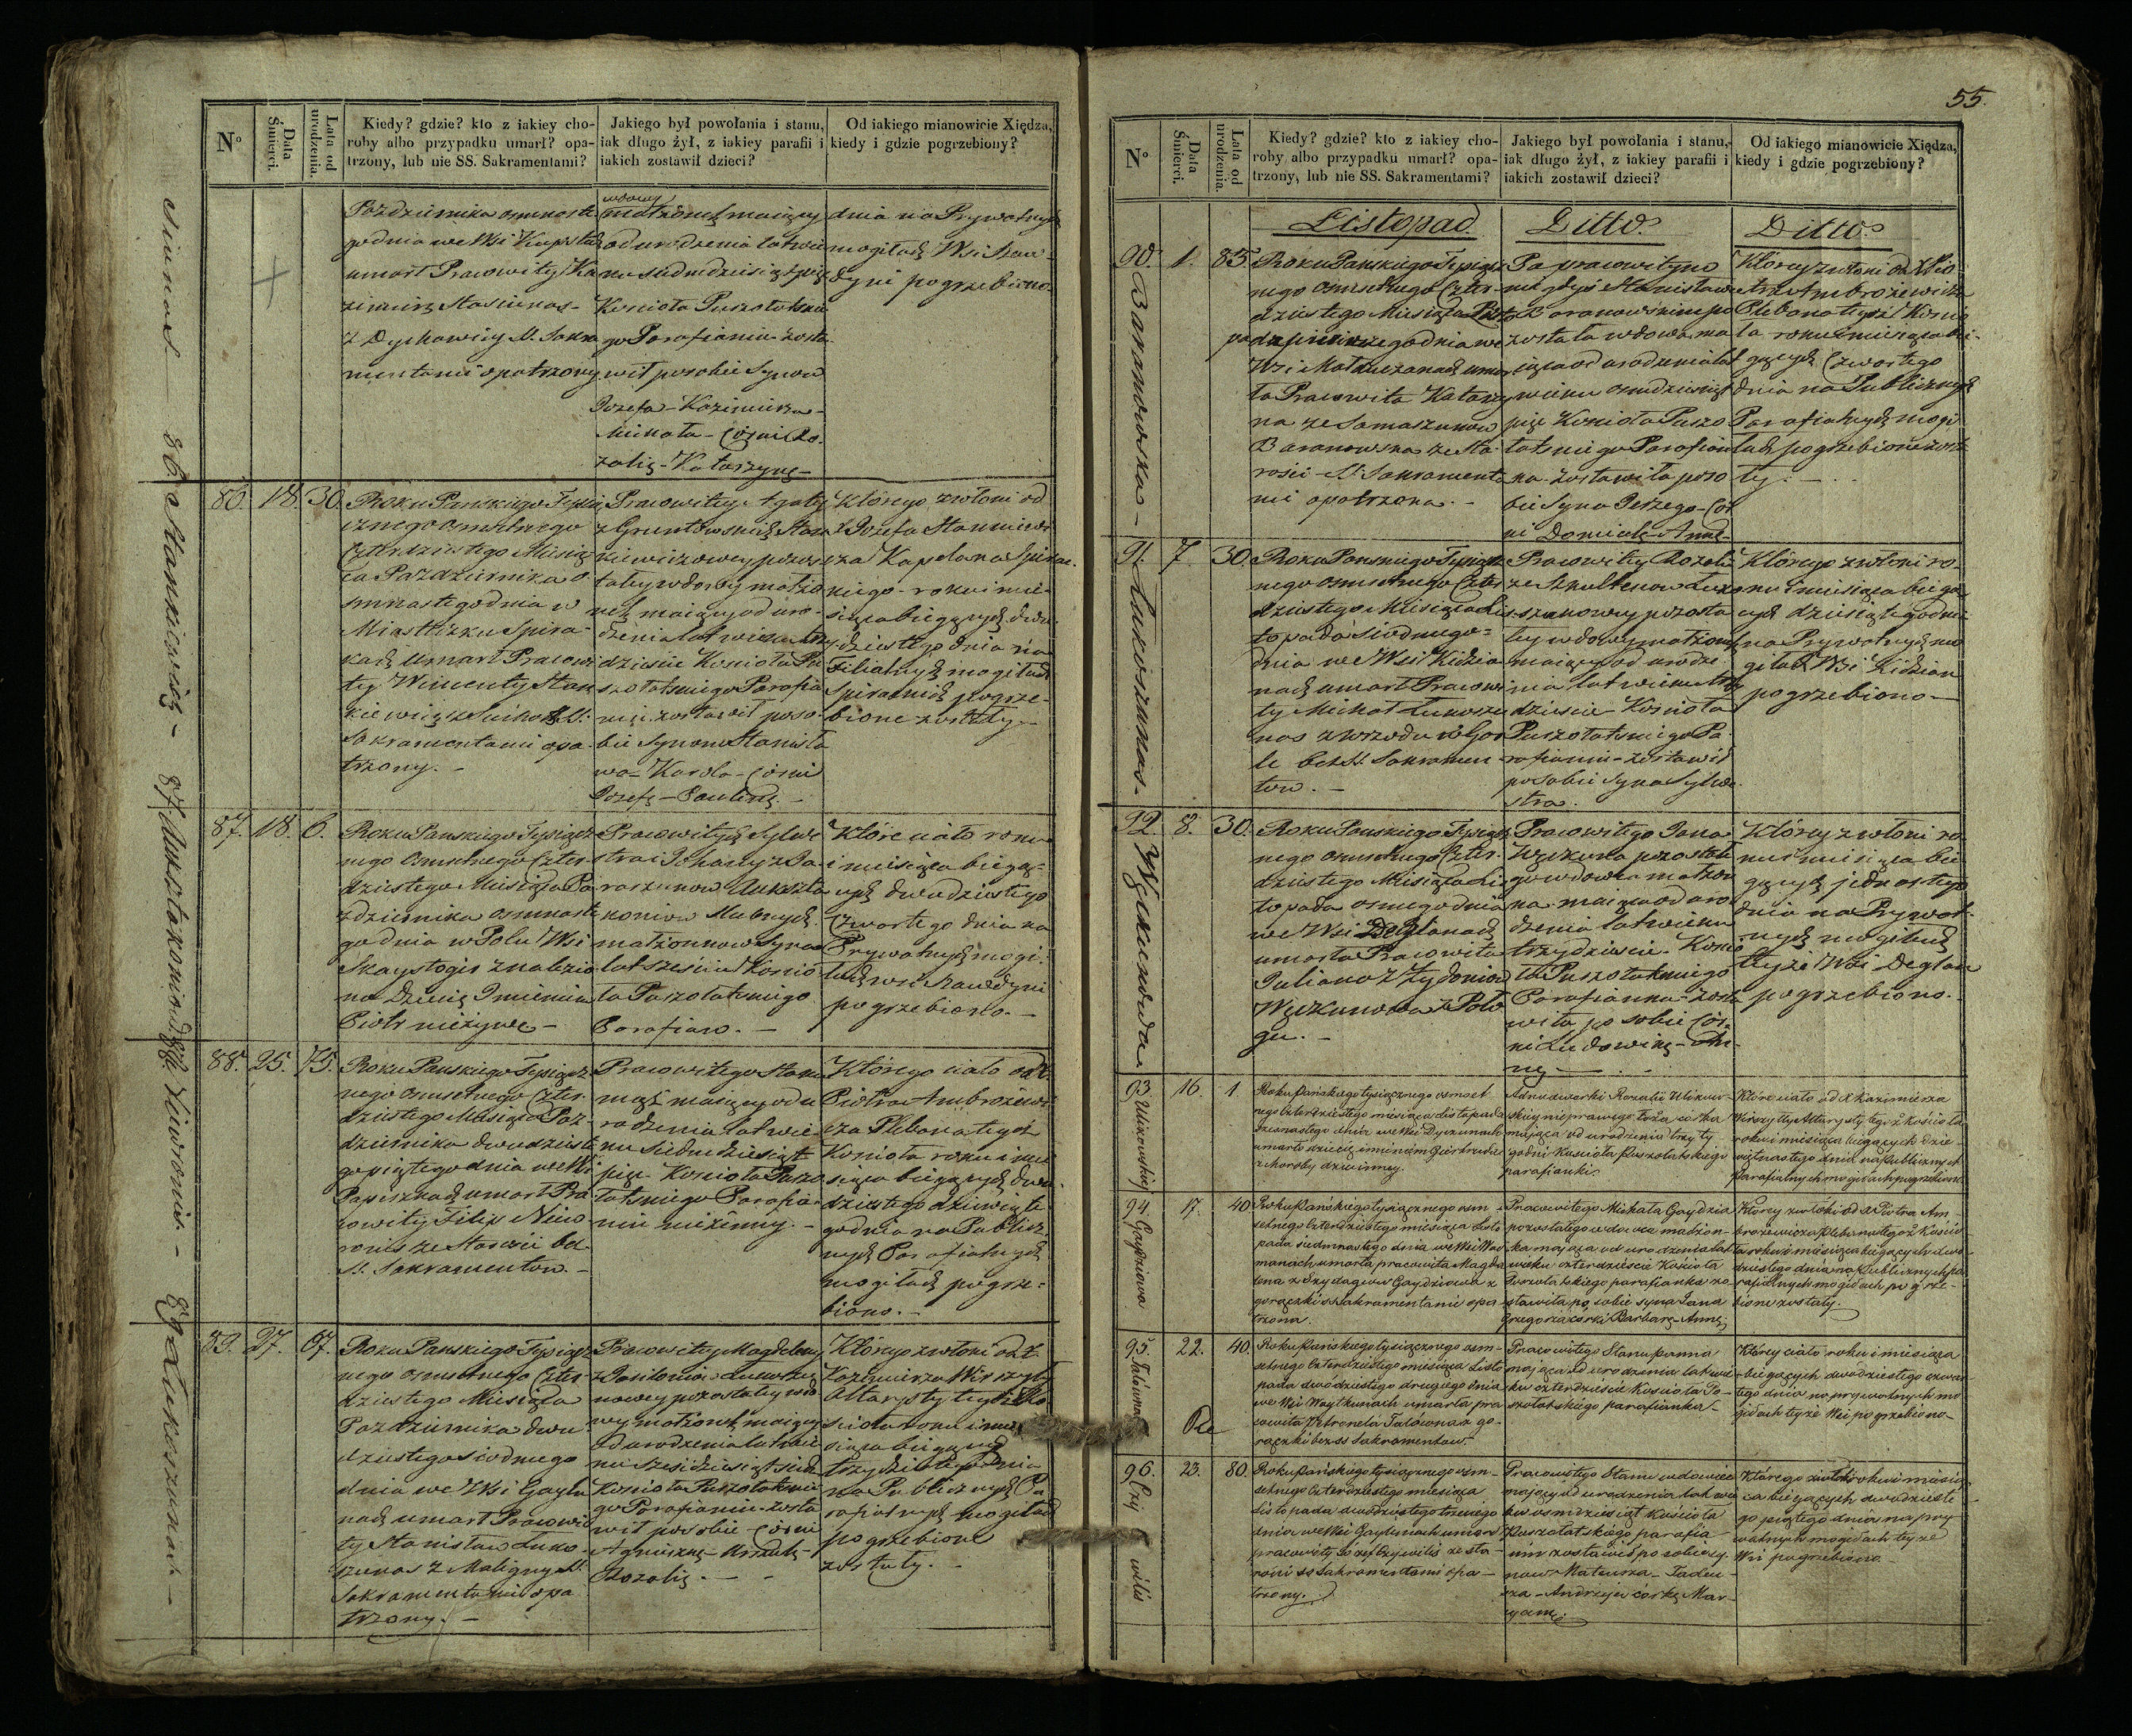 55.
Nº
Data Śmierci.
Lata od urodzenia.
Kiedy? gdzie? kto z iakiey cho-
roby albo przypadku umarł? opa-
trzony, lub nie SS. Sakramentami?
Jakiego był powołania i stanu,
iak długo żył, z iakiey parafii i
iakich zostawił dzieci?
Od iakiego mianowicie Xiędza,
kiedy i gdzie pogrzebiony?
Pazdziernika osmnaste
go dnia we Wsi
umarł Pracowity Ka
zimierz Stasiunas
z Dychawicy SS. Sakra
mentami opatrzony
wdowy
małżonkę maiący
od urodzenia lat wie
ku siedmdziesiąt pięć
Kościoła Puszołatskie
go Parafianin zosta
wił po sobie Synow
Jozefa - Kazimierza -
Michała - Corki Ro
zalią - Katarzynę -
dnia na Prywatnych
mogiłach Wsi Szaw
dyni pogrzebiono
86. 18. 30.
Roku Panskiego Tysią
cznego osmsetnego
Czterdziestego Miesią
ca Pazdziernika o
smnastego dnia w
Miasteczku Spira
kach umarł Pracowi
ty Wincenty Stan
kiewicz z Suchot SS.
Sakramentami opa
trzony. -
Pracowitey Agaty
z Gruntowskich Stan
kiewiczowey pozos
tałey wdowy małżo
nek maiący od uro
dzenia lat wieku trzy
dzieście Kościoła Pu
szołatskiego Parafia
nin zostawił po so
bie Synow Stanisła
wa - Karola - Corki
Jozefę - Paulinę. -
Którego zwłoki od
X Jozefa Stanniewi
cza Kapelana Spirac
kiego - roku i mie
siąca bieżących dwu
dziestego dnia na
Filialnych mogiłach
Spirackich pogrze
bione zostały. -
87. 18. 6.
Roku Panskiego Tysiącz
nego osmsetnego Czter
dziestego Miesiąca Pa
zdziernika osmnaste
go dnia w Polu Wsi
Skaystogir znalezio
no Dziecię Imieniem
Piotr nieżywe -
Pracowitych Sylwe
stra i Johanny z Ba
raszunow Aukszta
koniow Slubnych
małżonkow Syna
lat sześciu Kościo
ła Puszołatskiego
Parafian. -
Które ciało roku
i miesiąca bieżą
cych dwudziestego
Czwartego dnia na
Prywatnych mogi
łach wsi Szawdyni
pogrzebiono. -
88. 25. 75.
Roku Panskiego Tysiącz
nego osmsetnego Czter
dziestego Miesiąca Paz
dziernika dwudzieste
go piątego dnia we Wsi
Papiszkach umarł Pra
cowity Filip Niew
ronis ze Starości bez
SS. Sakramentow. -
Pracowitego Stanu
mąż maiący od u
rodzenia lat wie
ku Siedmdziesiąt
pięć Kościoła Puszo
łatskiego Parafia
nin nieżenny. -
Którego ciało od X
Piotra Ambrożewi
cza Plebana tegoż
Kościoła roku i mie
siąca bieżących dwu
dziestego dziewiąte
go dnia na Publicz
nych Parafialnych
mogiłach pogrze
biono. -
89. 27. 67.
Roku Panskiego Tysiącz
nego osmsetnego Czter
dziestego Miesiąca
Pazdziernika dwu
dziestego siodmego
dnia we Wsi Gaylu
nach umarł Pracowi
ty Stanisław Łuko
szunas z Maligny SS.
Sakramentami opa
trzony. -
Pracowitey Magdaleny
z Łukoszu
nowey pozostałey wdo
wy małżonek maiący
od urodzenia lat wie
ku sześćdziesiąt siedm
Kościoła Puszołatskie
go Parafianin zosta
wił po sobie - Corki
Agnieszkę - Urszulę -
Rozalię. -
Którego zwłoki od X
Kazimierza Wirszyłły
Altarysty tegoż Ko
ścioła roku i mie
siąca bieżących
trzydziestego dnia
na Publicznych Pa
rafialnych mogiłach
pogrzebione
zostały. -
Siunas - 86 Stankiewicz - 87 Auksztakoniow - 88 Niewronis - 89 Łukoszunas -
Nº
Data Śmierci.
Lata od urodzenia.
Kiedy? gdzie? kto z iakiey cho-
roby albo przypadku umarł? opa-
trzony, lub nie SS. Sakramentami?
Jakiego był powołania i stanu,
iak długo żył, z iakiey parafii i
iakich zostawił dzieci?
Od iakiego mianowicie Xiędza,
kiedy i gdzie pogrzebiony?
Listopad Ditto. Ditto.
90. 1. 85.
Baranowska -
Roku Panskiego Tysiącz
nego osmsetnego Czter
dziestego Miesiąca Listo
pada pierwszego dnia we
Wsi umar
ła Pracowita Katarzy
na ze Samaszunow
Baranowska ze Sta
rości SS. Sakramenta
mi opatrzona. -
Po pracowitym
niegdyś Stanisławie
Baranowskim po
została wdowa ma
iąca od urodzenia lat
wieku osmdziesiąt
pięć Kościoła Puszo
łatskiego Parafian
ka zostawiła po so
bie Syna Jerzego - Cor
ki Domicelę - Annę -
Którey zwłoki od X Pio
tra Ambrożewicza
Plebana tegoż Kościo
ła roku i miesiąca bie
żących Czwartego
dnia na Publicznych
Parafialnych mogi
łach pogrzebione zosta
ły. -
91. 7. 30.
Łukoszunas -
Roku Panskiego Tysiącz
nego osmsetnego Czter
dziestego Miesiąca Lis
topada siodmego
dnia we Wsi Kidzia
nach umarł Pracowi
ty Michał Łukoszu
nas z wrzodu w Gar
le bez SS. Sakramen
tow. -
Pracowitey Rozalii
ze Szultenow Łuko
szunowey pozosta
łey wdowy małżonek
maiący od urodze
nia lat wieku trzy
dzieście - Kościoła
Puszołatskiego Pa
rafianin - zostawił
po sobie Syna Sylwe
stra.
Którego zwłoki ro
ku i miesiąca bieżą
cych dziesiątego dnia
na Prywatnych mo
giłach Wsi Kidzian
pogrzebiono -
92. 8. 30.
Roku Panskiego Tysiącz
nego osmsetnego Czter
dziestego Miesiąca Lis
topada osmego dnia
we Wsi Deglanach
umarła Pracowita
Julianna z Żydoniow
ze Poło
gu. -
Pracowitego Jana
pozostałe
go wdowca małżon
ka maiąca od uro
dzenia lat wieku
trzydzieście - Kościo
ła Puszołatskiego
Parafianka - zosta
wiła po sobie Cor
ki Ludowikę - An
nę -
Którey zwłoki ro
ku i miesiąca bie
żących jednastego
dnia na Prywat
nych mogiłach
teyże Wsi Deglan
pogrzebiono. -
93. 16. 1
Roku Pańskiego tysiącznego osmset
nego Czterdziestego miesiąca Listopada
szesnastego dnia we Wsi Dyczunach
umarło dziecię imieniem Giertruda
z choroby dziecinney.
Rozalii
nieprawego łoża córka
mająca od urodzenia trzy ty
godni Kościoła Puszołatskiego
parafianki.
Które ciało od X Kazimierza
Wirszyłły Altarysty tegoż Kościoła
roku i miesiąca bieżących dzie
więtnastego dnia na publicznych
parafialnych mogiłach pogrzebiono
94. 17. 40
Gaydziowa
Roku Pańskiego tysiącznego osm
setnego Czterdziestego miesiąca Listo
pada siedmnastego dnia we Wsi
umarła pracowita Magda
lena z Szydagiow Gaydziowa z
gorączki SS Sakramentami opa
trzona.
Pracowitego Michała Gaydzia
pozostałego wdowca małżon
ka mająca od urodzenia lat
wieku czterdzieście Kościoła
Puszołatskiego parafianka zo
stawiła po sobie syna Jana
Grzegorza córki Barbarę - Annę
Którey zwłoki od X Piotra Am
brożewicza Plebana tegoż Kościo
ła roku i miesiąca bieżących dwu
dziestego dnia na publicznych pa
rafialnych mogiłach pogrze
bione zostały.
95. 22. 40
Tulówna
Roku Pańskiego tysiącznego osm
setnego Czterdziestego miesiąca Listo
pada dwódziestego drugiego dnia
we Wsi Waytkunach umarła pra
cowita Petronela Tulówna z go
rączki bez SS Sakramentow.
Pracowitego Stanu panna
mająca od urodzenia lat wie
ku czterdzieście Kościoła Pu
szołatskiego parafianka -
Którey ciało roku i miesiąca
bieżących dwódziestego czwar
tego dnia na prywatnych mo
giłach teyże Wsi pogrzebiono -
96. 23. 80.
Roku Pańskiego tysiącznego osm
setnego Czterdziestego miesiąca
Listopada dwódziestego trzeciego
dnia we Wsi Gaylunach umarł
pracowity Józef ze sta
rości SS Sakramentami opa
trzony.
Pracowitego Stanu wdowiec
mający od urodzenia lat wie
ku osmdziesiąt Kościoła
Puszołatskiego parafia
nin zostawił po sobie sy
now Mateusza - Tadeu
sza - Andrzeja córkę Mar
yannę.
Którego zwłoki roku i miesią
ca bieżących dwódzieste
go piątego dnia na pry
watnych mogiłach teyże
Wsi pogrzebiono